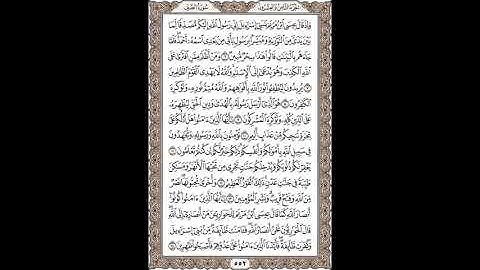 الجزء الثامن والعشرون سورة الصف
وَإِذْ قَالَ عِيسَى ابْنُ مَرْيَمَ يَا بَنِي إِسْرَائِيلَ إِنِّي رَسُولُ اللَّهِ إِلَيْكُم مُّصَدِّقًا لِّمَا
بَيْنَ يَدَيَّ مِنَ التَّوْرَاةِ وَمُبَشِّرًا بِرَسُولٍ يَأْتِي مِن بَعْدِي اسْمُهُ أَحْمَدُ فَلَمَّا
جَاءَهُم بِالْبَيِّنَاتِ قَالُوا هَذَا سِحْرٌ مُّبِينٌ ٦ وَمَنْ أَظْلَمُ مِمَّنِ افْتَرَى عَلَى
اللَّهِ الْكَذِبَ وَهُوَ يُدْعَى إِلَى الْإِسْلَامِ وَاللَّهُ لَا يَهْدِي الْقَوْمَ الظَّالِمِينَ
٧ يُرِيدُونَ لِيُطْفِئُوا نُورَ اللَّهِ بِأَفْوَاهِهِمْ وَاللَّهُ مُتِمُّ نُورِهِ وَلَوْ كَرِهَ
الْكَافِرُونَ ٨ هُوَ الَّذِي أَرْسَلَ رَسُولَهُ بِالْهُدَى وَدِينِ الْحَقِّ لِيُظْهِرَهُ
عَلَى الدِّينِ كُلِّهِ وَلَوْ كَرِهَ الْمُشْرِكُونَ ٩ يَا أَيُّهَا الَّذِينَ آمَنُوا هَلْ أَدُلُّكُمْ عَلَى
تِجَارَةٍ تُنجِيكُم مِّنْ عَذَابٍ أَلِيمٍ ١٠ تُؤْمِنُونَ بِاللَّهِ وَرَسُولِهِ وَتُجَاهِدُونَ
فِي سَبِيلِ اللَّهِ بِأَمْوَالِكُمْ وَأَنفُسِكُمْ ذَلِكُمْ خَيْرٌ لَّكُمْ إِن كُنتُمْ تَعْلَمُونَ ١١
يَغْفِرْ لَكُمْ ذُنُوبَكُمْ وَيُدْخِلْكُمْ جَنَّاتٍ تَجْرِي مِن تَحْتِهَا الْأَنْهَارُ وَمَسَاكِنَ
طَيِّبَةً فِي جَنَّاتِ عَدْنٍ ذَلِكَ الْفَوْزُ الْعَظِيمُ ١٢ وَأُخْرَى تُحِبُّونَهَا نَصْرٌ
مِّنَ اللَّهِ وَفَتْحٌ قَرِيبٌ وَبَشِّرِ الْمُؤْمِنِينَ ١٣ يَا أَيُّهَا الَّذِينَ آمَنُوا كُونُوا
أَنصَارَ اللَّهِ كَمَا قَالَ عِيسَى ابْنُ مَرْيَمَ لِلْحَوَارِيِّينَ مَنْ أَنصَارِي إِلَى اللَّهِ
قَالَ الْحَوَارِيُّونَ نَحْنُ أَنصَارُ اللَّهِ فَآمَنَت طَّائِفَةٌ مِّن بَنِي إِسْرَائِيلَ
وَكَفَرَت طَّائِفَةٌ فَأَيَّدْنَا الَّذِينَ آمَنُوا عَلَى عَدُوِّهِمْ فَأَصْبَحُوا ظَاهِرِينَ ١٤
٥٥٢